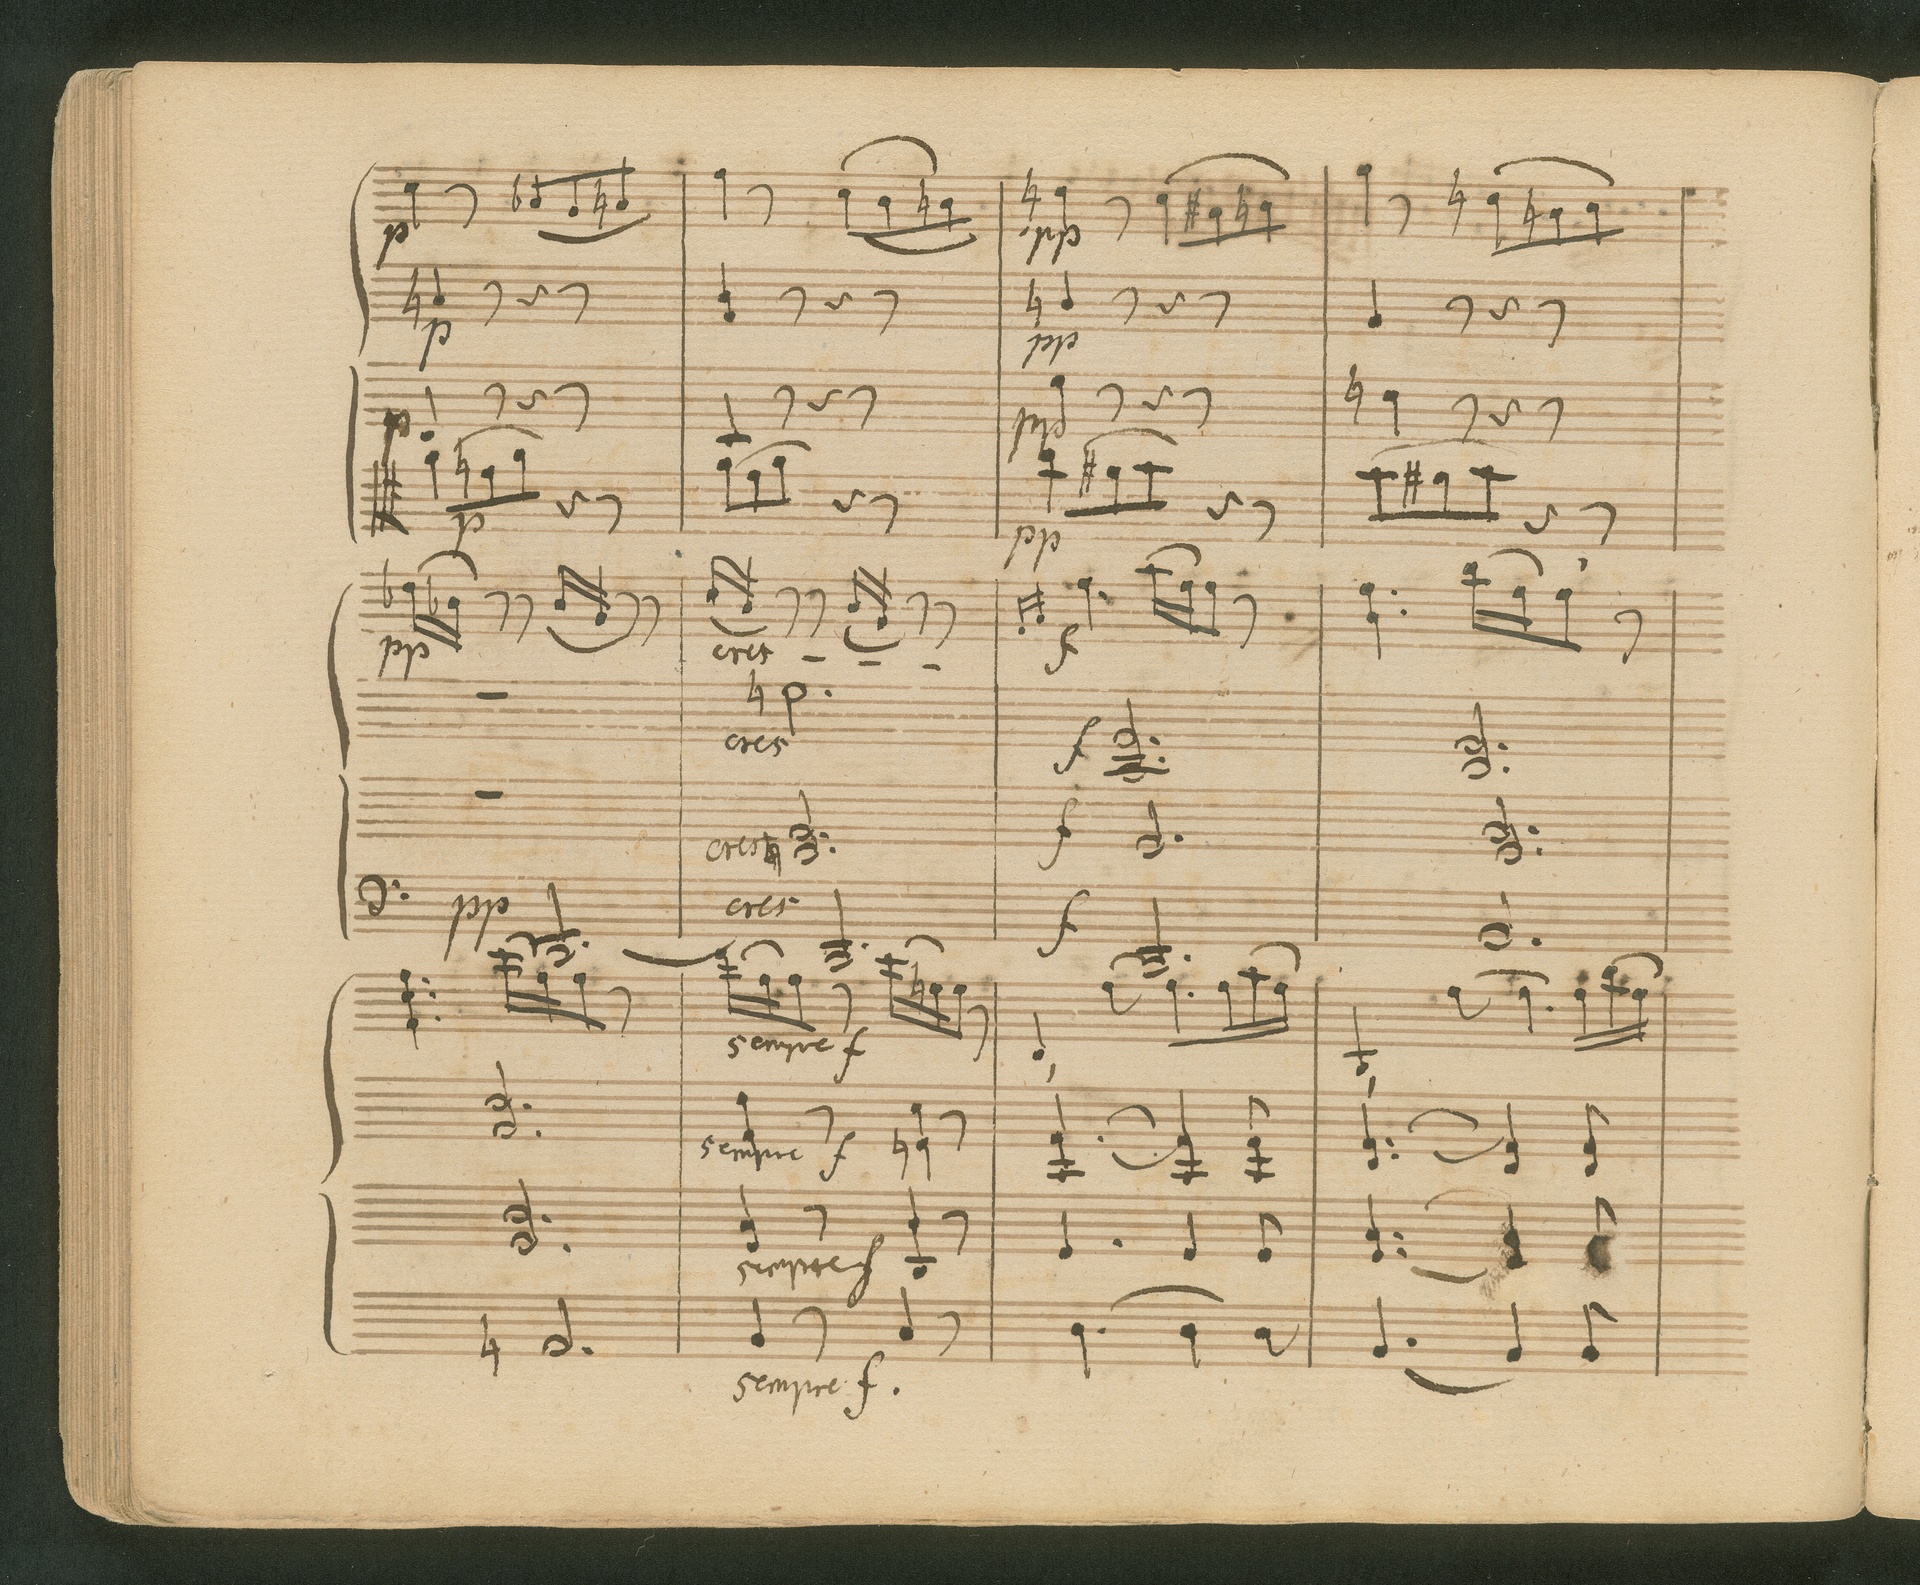 p
p
pp
pp
p
p
pp
pp
pp cres f
cres f
cres f
pp cres f
sempre f
sempre f
sempre f
sempre f.